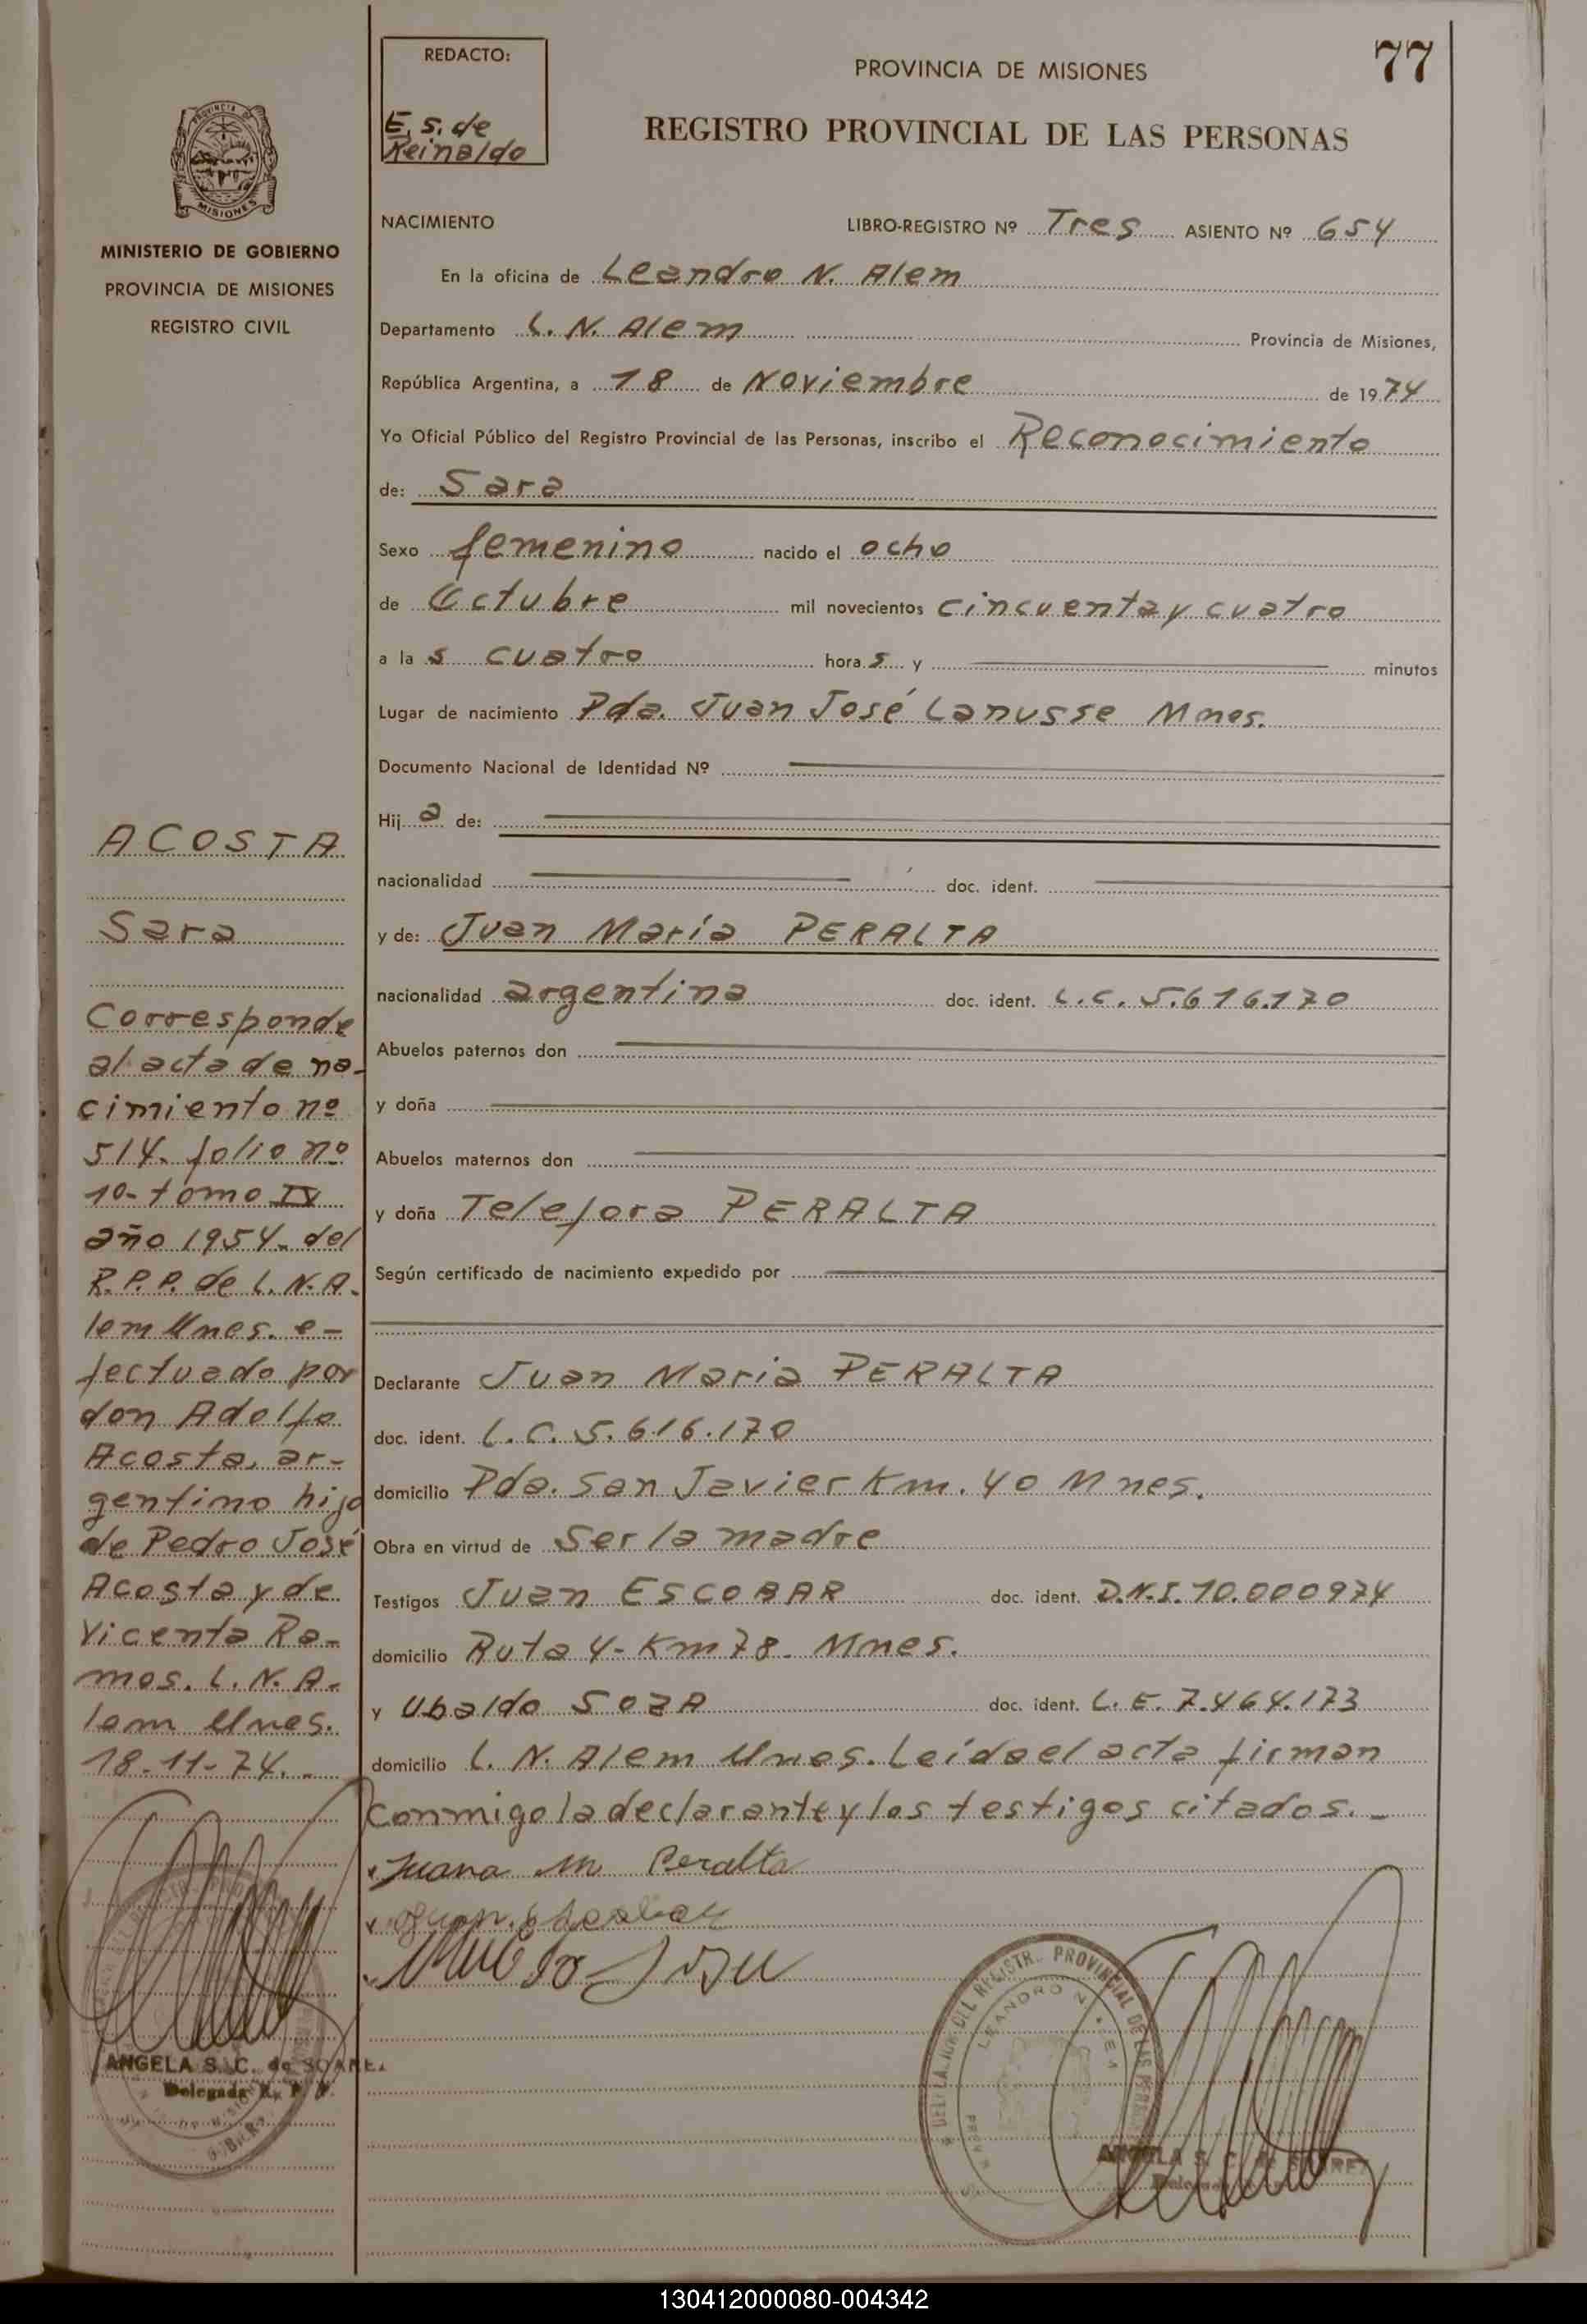 77
REDACTO:
E. S. de
Reinaldo
PROVINCIA DE MISIONES
REGISTRO PROVINCIAL DE LAS PERSONAS
PROVINCIA DE
MISIONES
MINISTERIO DE GOBIERNO
PROVINCIA DE MISIONES
REGISTRO CIVIL
NACIMIENTO
LIBRO-REGISTRO Nº Tres ASIENTO Nº 654
En la oficina de Leandro N. Alem
Departamento L. N. Alem Provincia de Misiones,
República Argentina, a 18 de Noviembre de 1974
Yo Oficial Público del Registro Provincial de las Personas, inscribo el Reconocimiento
de: Sara
Sexo femenino nacido el ocho
de Octubre mil novecientos cincuenta y cuatro
a las cuatro horas y minutos
Lugar de nacimiento Pda. Juan José Lanusse Mnes.
Documento Nacional de Identidad Nº
Hija de:
nacionalidad doc. ident.
y de: Juan María PERALTA
nacionalidad argentina doc. ident. L.C. 5.616.170
Abuelos paternos don
y doña
Abuelos maternos don
y doña Telefora PERALTA
Según certificado de nacimiento expedido por
Declarante Juan Maria PERALTA
doc. ident. L.C. 5.616.170
domicilio Pda. San Javier Km. 40 Mnes.
Obra en virtud de Ser la madre
Testigos Juan ESCOBAR doc. ident. D.N.I. 10.000974
domicilio Ruta 4- Km 78- Mnes.
y Ubaldo SOZA doc. ident. L.E. 7.464.173
domicilio L. N. Alem Mnes. Leída el acta firman
conmigo la declarante y los testigos citados.-
Juana M Peralta
Juan Escobar
ACOSTA
Sara
Corresponde
al acta de na-
cimiento nº
514. folio nº
10- tomo IV
año 1954- del
R.P.P. de L. N. A-
lem Mnes. e-
fectuado por
don Adolfo
Acosta, ar-
gentino hijo
de Pedro José
Acosta y de
Vicenta Ra-
mos. L. N. A-
lem Mnes.
18-11-74.-
ANGELA S. C. de SOAREZ
Delegada R. P. P.
DEL REGISTR. PROVINCIAL DE LAS
LEANDRO N. ALEM
ANGELA S. C. de SOAREZ
130412000080-004342